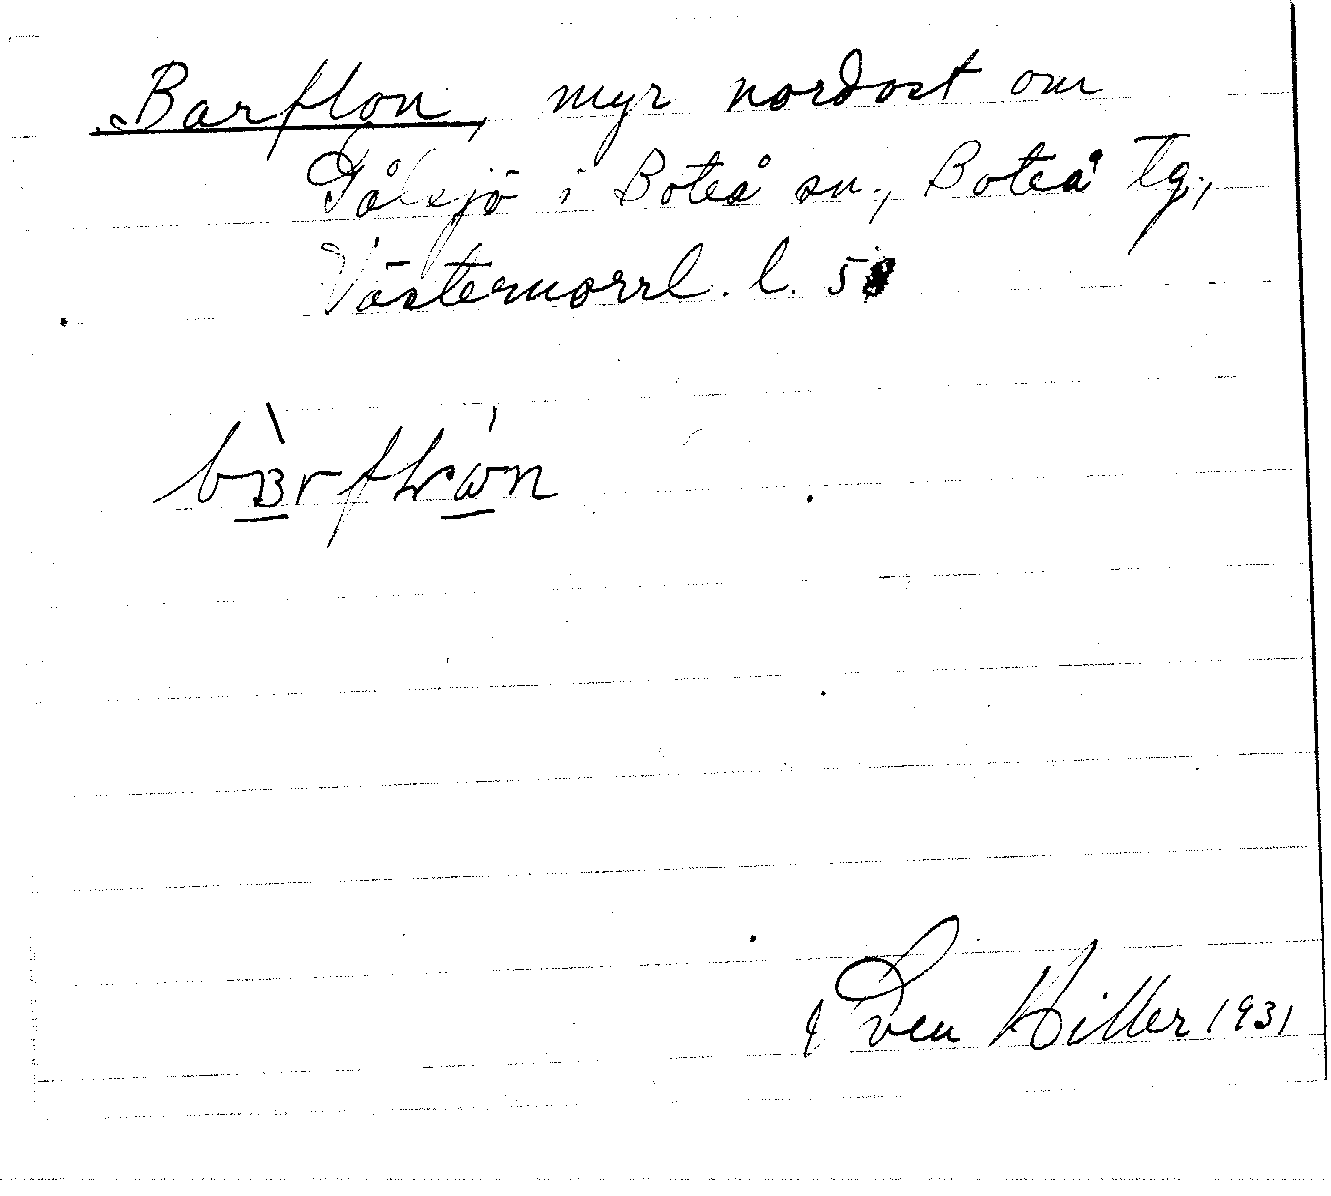 Barflon, myr nordost om
Tålsjö i Boteå sn., Boteå tg.,
Västernorrl. l.
Sven Hiller 1931